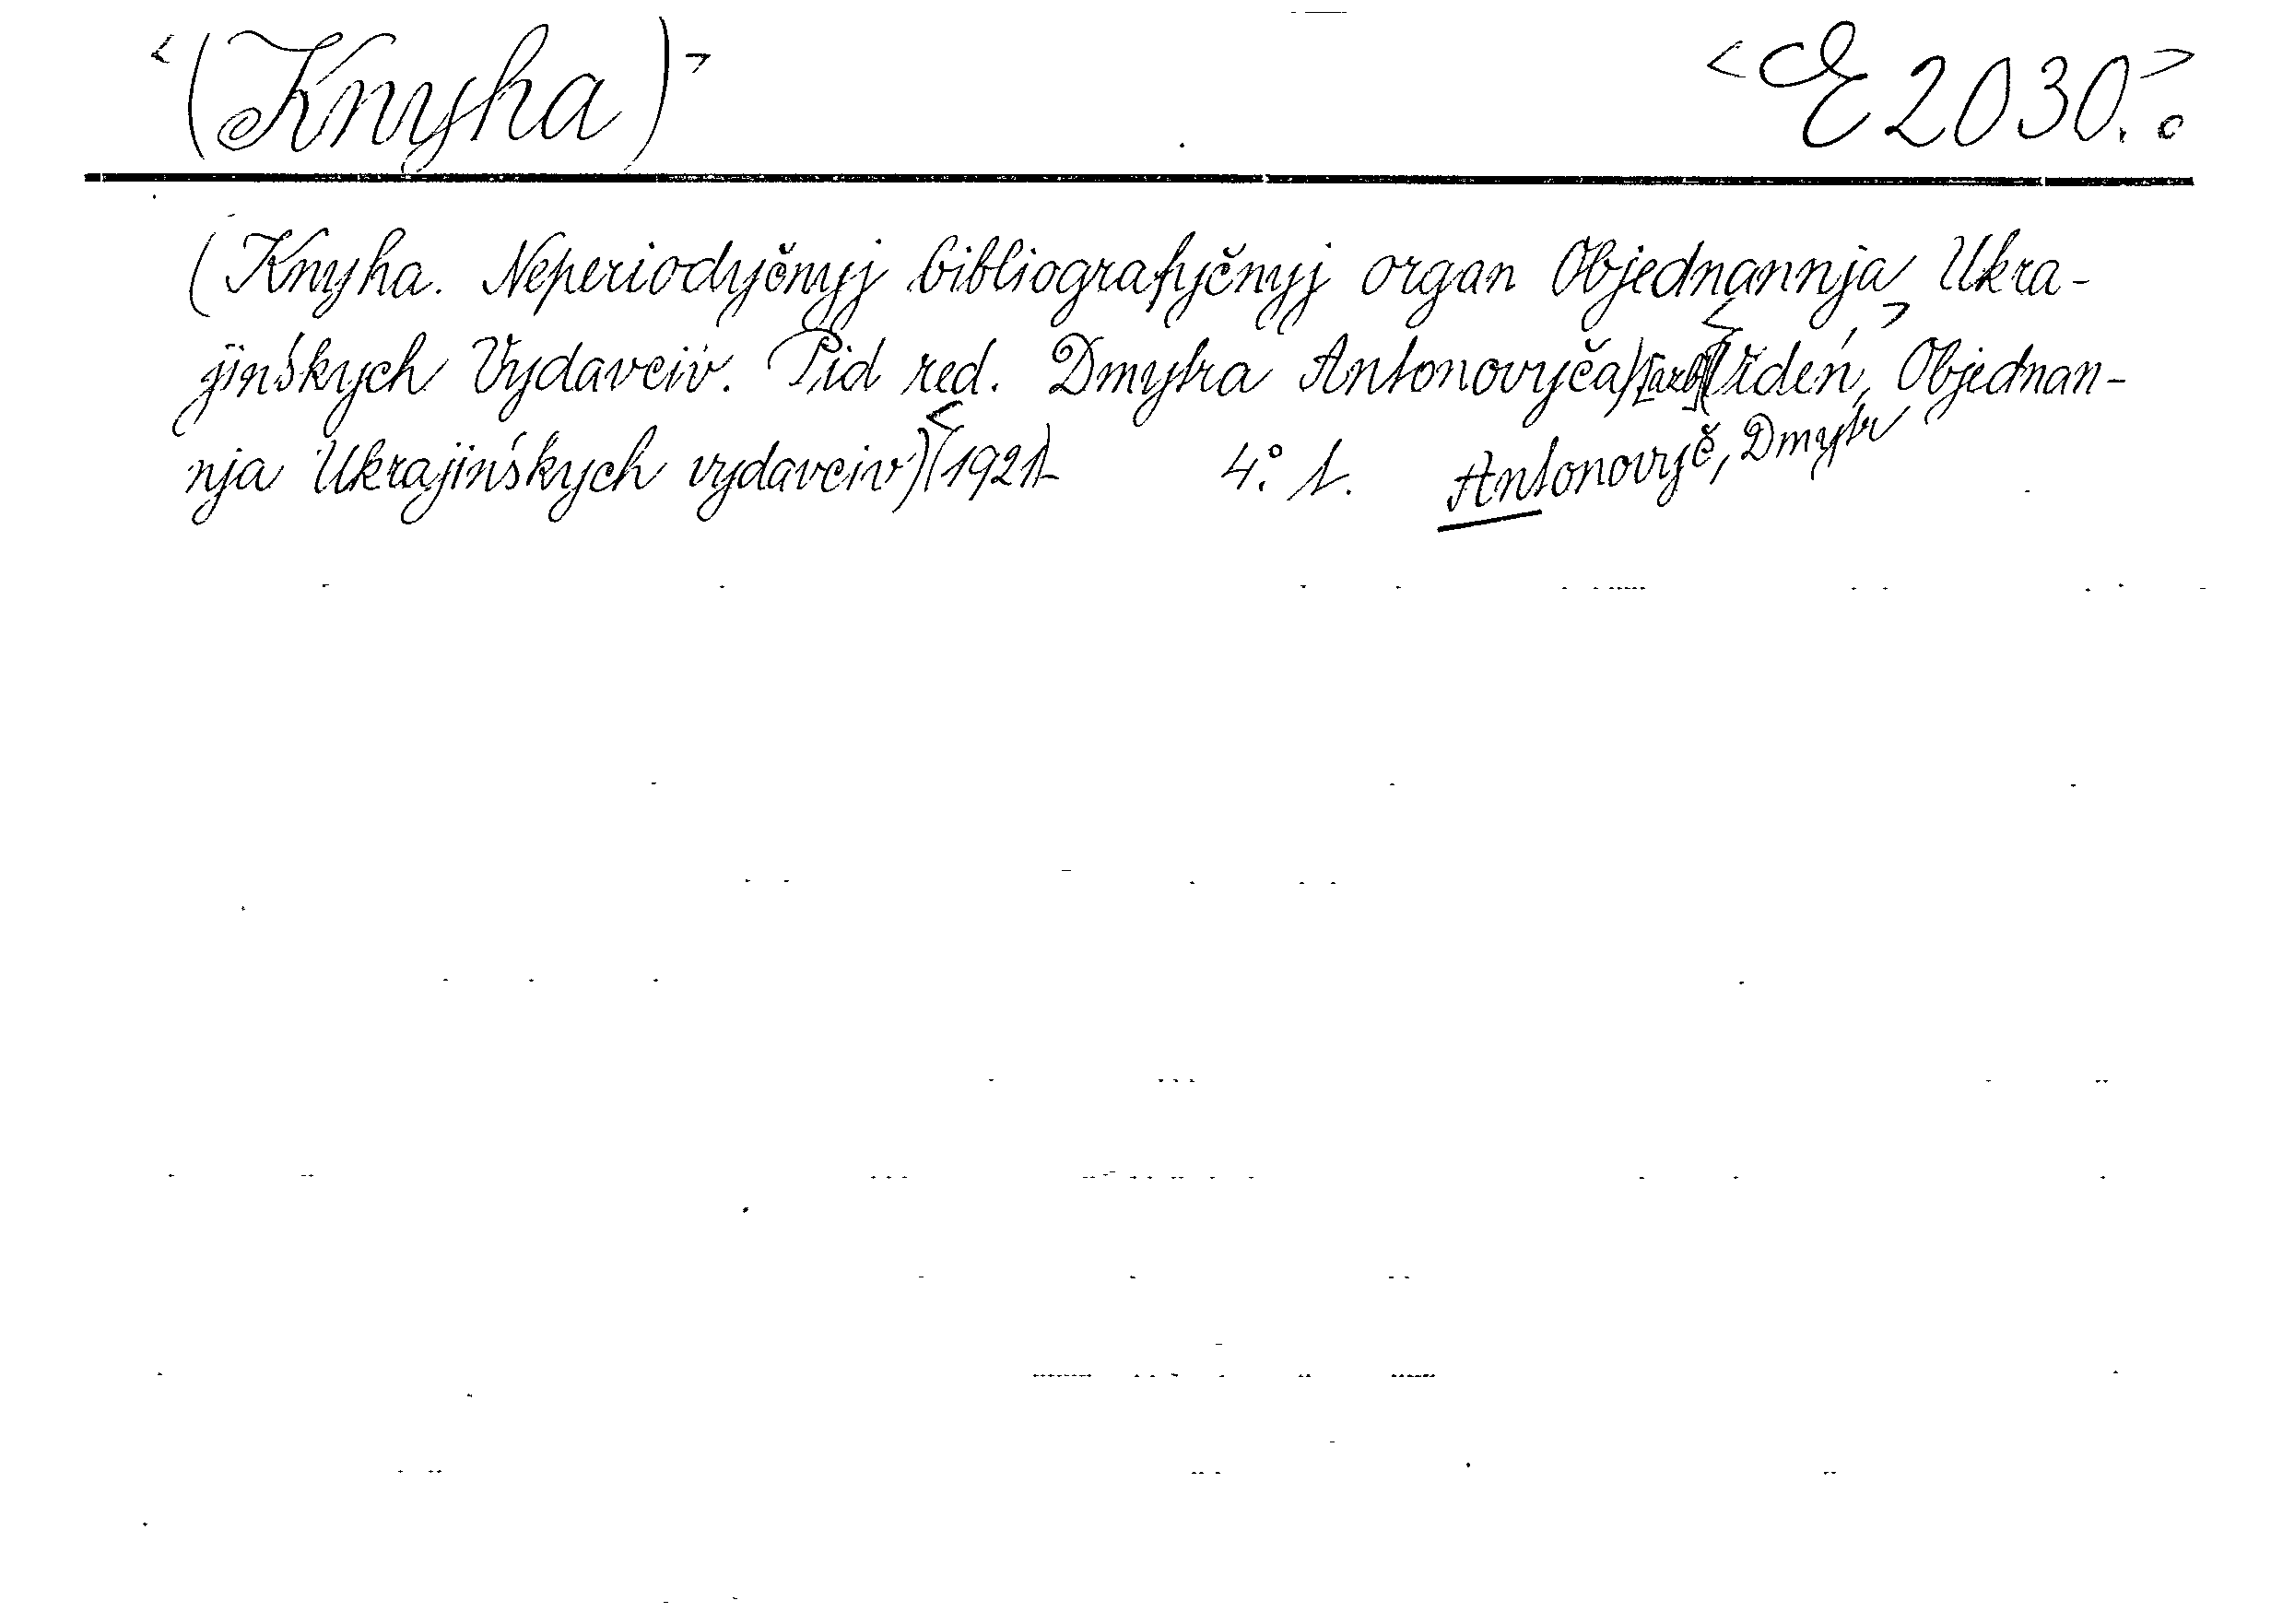 <(Knyha)> <E 2030.>c
(Knyha. Neperiodyčnyj bibliografyčnyj organ Objednannja Ukra-
jinśkych Vydavciv. Pid red. Dmytra Antonovyča) Videń, Objednan-
nja Ukrajinśkych vydavciv) <(1921)- 4.° 1. Antonovyč, Dmytr